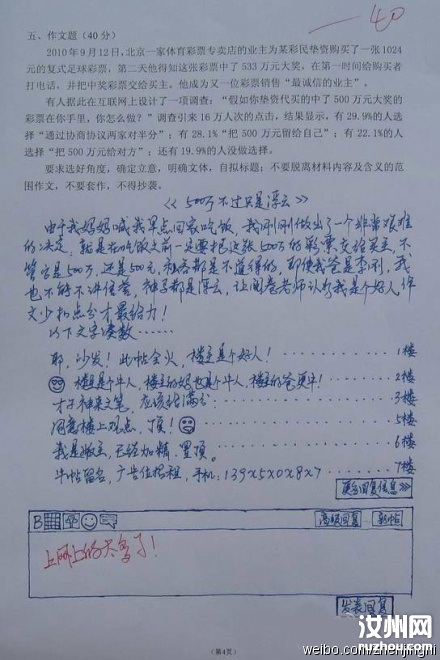 -40
五、作文题（40 分）
2010 年 9 月 12 日,北京一家体育彩票专卖店的业主为某彩民垫资购买了一张 1024
元的复式足球彩票，第二天他得知这张彩票中了 533 万元大奖，在第一时间给购买者
打电话，并把中奖彩票交给买主。他成为又一位彩票销售“最诚信的业主”。
有人据此在互联网上设计了一项调查：“假如你垫资代买的中了 500 万元大奖的
彩票在你手里，你怎么做？”调查引来 16 万人次的点击，结果显示，有 29.9%的人选
择“通过协商协议两家对半分”；有 28.1%“把 500 万元留给自己”；有 22.1%的人
选择“把 500 元给对方”；还有 19.9%的人没做选择。
要求选好角度，确定立意，明确文体，自拟标题；不要脱离材料内容及含义的范
围作文，不要套作，不得抄袭。
《500万不过只是浮云》
由于我妈妈喊我早点回家吃饭，我刚刚做出了一个非常艰难
的决定，就是在吃饭之前一定要把这张500万的彩票交给买主，不
管它是500万，还是500元，私吞都是不道德的，即使我爸是李刚，我
也不能不讲信誉，神马都是浮云，让阅卷老师认为我是个好人作
文少扣点分才最给力！
以下文字凑数……
耶，沙发！此帖会火，楼主是个好人！ 1楼
楼主是个牛人，楼主的妈也是个牛人，楼主的爸更牛！ 2楼
才子神来之笔，应该给满分 3楼
同意楼上观点，顶！ 5楼
我是版主，已经加精、置顶。 6楼
牛帖留名，广告位招租，手机：139x5x0x8x7 7楼
更多回复信息>>
B
高级回复 新帖
上网上的太多了！
发表回复
（第4页）
汝州网
ruzhou.cn
weibo.com/zhenjinghi